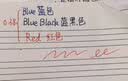 Blue 蓝色
0.38 Blue Black 蓝黑色
Red 红色